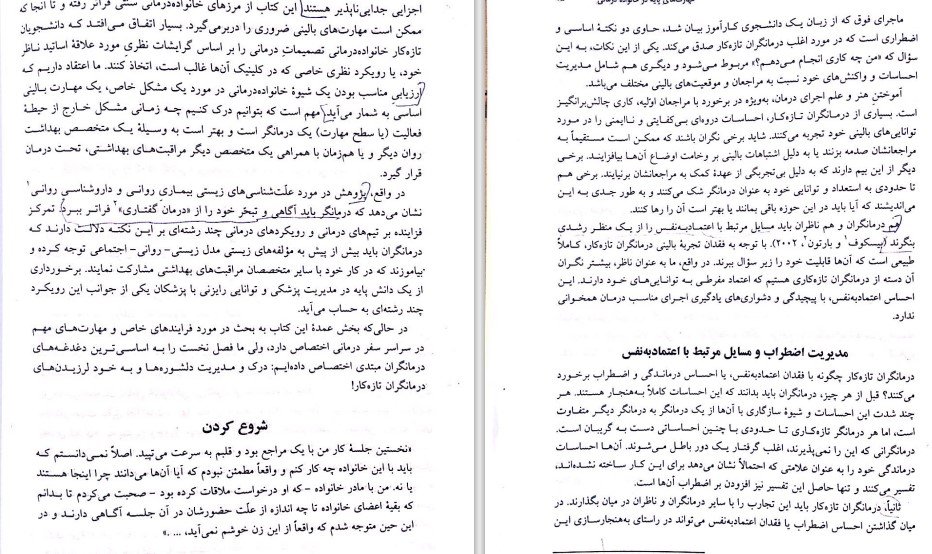 اجزایی جدایی‌ناپذیر هستند این کتاب از مرزهای خانواده‌درمانی سنتی فراتر رفته و تا آنجا که
ممکن است مهارت‌های بالینی ضروری را دربرمی‌گیرد. بسیار اتفاق می‌افتد که دانشجویان
تازه‌کار خانواده‌درمانی تصمیمات درمانی را بر اساس گرایشات نظری مورد علاقهٔ اساتید ناظر
خود، یا رویکرد نظری خاصی که در کلینیک آن‌ها غالب است، اتخاذ کنند. ما اعتقاد داریم که
ارزیابی مناسب بودن یک شیوهٔ خانواده‌درمانی در مورد یک مشکل خاص، یک مهارت بالینی
اساسی به شمار می‌آید مهم است که بتوانیم درک کنیم چه زمانی مشکل خارج از حیطهٔ
فعالیت (یا سطح مهارت) یک درمانگر است و بهتر است به وسیلهٔ یک متخصص بهداشت
روان دیگر و یا همزمان با همراهی یک متخصص دیگر مراقبت‌های بهداشتی، تحت درمان
قرار گیرد.
در واقع، پژوهش در مورد علّت‌شناسی‌های زیستی بیماری روانی و داروشناسی روانی۱
نشان می‌دهد که درمانگر باید آگاهی و تبحّر خود را از «درمان گفتاری»۲ فراتر ببرد. تمرکز
فزاینده بر تیم‌های درمانی و رویکردهای درمانی چند رشته‌ای بر این نکته دلالت دارند که
درمانگران باید بیش از پیش به مؤلفه‌های زیستی مدل زیستی- روانی- اجتماعی توجه کرده و
بیاموزند که در کار خود با سایر متخصصان مراقبت‌های بهداشتی مشارکت نمایند. برخورداری
از یک دانش پایه در مدیریت پزشکی و توانایی رایزنی با پزشکان یکی از جوانب این رویکرد
چند رشته‌ای به حساب می‌آید.
در حالی‌که بخش عمدهٔ این کتاب به بحث در مورد فرایندهای خاص و مهارت‌های مهم
در سراسر سفر درمانی اختصاص دارد، ولی ما فصل نخست را به اساسی‌ترین دغدغه‌های
درمانگران مبتدی اختصاص داده‌ایم: درک و مدیریت دلشوره‌ها و به خود لرزیدن‌های
درمانگران تازه‌کار!
شروع کردن
«نخستین جلسهٔ کار من با یک مراجع بود و قلبم به سرعت می‌تپید. اصلاً نمی‌دانستم که
باید با این خانواده چه کار کنم و واقعاً مطمئن نبودم که آیا آن‌ها می‌دانند چرا اینجا هستند
یا نه. من با مادر خانواده – که او درخواست ملاقات کرده بود – صحبت می‌کردم تا بدانم
که بقیهٔ اعضای خانواده تا چه اندازه از علّت حضورشان در آن جلسه آگاهی دارند و در
این حین متوجه شدم که واقعاً از این زن خوشم نمی‌آید، ... .»
مهارت‌های پایه در خانواده درمانی
ماجرای فوق که از زبان یک دانشجوی کارآموز بیان شد، حاوی دو نکتهٔ اساسی و
اضطراری است که در مورد اغلب درمانگران تازه‌کار صدق می‌کند. یکی از این نکات، به این
سؤال که «من چه کاری انجام می‌دهم؟» مربوط می‌شود و دیگری هم شامل مدیریت
احساسات و واکنش‌های خود نسبت به مراجعان و موقعیت‌های بالینی مختلف می‌باشد.
آموختن هنر و علم اجرای درمان، به‌ویژه در برخورد با مراجعان اولیه، کاری چالش‌برانگیز
است. بسیاری از درمانگران تازه‌کار، احساسات دروه‌ای بی‌کفایتی و ناایمنی را در مورد
توانایی‌های بالینی خود تجربه می‌کنند. شاید برخی نگران باشند که ممکن است مستقیماً به
مراجعانشان صدمه بزنند یا به دلیل اشتباهات بالینی بر وخامت اوضاع آن‌ها بیافزایند. برخی
دیگر از این بیم دارند که به دلیل بی‌تجربگی از عهدهٔ کمک به مراجعانشان برنیایند. برخی هم
تا حدودی به استعداد و توانایی خود به عنوان درمانگر شک می‌کنند و به طور جدی به این
می‌اندیشند که آیا باید در این حوزه باقی بمانند یا بهتر است آن را رها کنند.
هم درمانگران و هم ناظران باید مسایل مرتبط با اعتمادبه‌نفس را از یک منظر رشدی
بنگرند (بیسکوف۱ و بارتون۲، ۲۰۰۲). با توجه به فقدان تجربهٔ بالینی درمانگران تازه‌کار، کاملاً
طبیعی است که آن‌ها قابلیت خود را زیر سؤال ببرند. در واقع، ما به عنوان ناظر، بیشتر نگران
آن دسته از درمانگران تازه‌کاری هستیم که اعتماد مفرطی به توانایی‌های خود دارند. این
احساس اعتمادبه‌نفس، با پیچیدگی و دشواری‌های یادگیری اجرای مناسب درمان همخوانی
ندارد.
مدیریت اضطراب و مسایل مرتبط با اعتمادبه‌نفس
درمانگران تازه‌کار چگونه با فقدان اعتمادبه‌نفس، یا احساس درماندگی و اضطراب برخورد
می‌کنند؟ قبل از هر چیز، درمانگران باید بدانند که این احساسات کاملاً به‌هنجار هستند. هر
چند شدت این احساسات و شیوهٔ سازگاری با آن‌ها از یک درمانگر به درمانگر دیگر متفاوت
است، اما هر درمانگر تازه‌کاری تا حدودی با چنین احساساتی دست به گریبان است.
درمانگرانی که این را نمی‌پذیرند، اغلب گرفتار یک دور باطل می‌شوند. آن‌ها احساسات
درماندگی خود را به عنوان علامتی که احتمالاً نشان می‌دهد برای این کار ساخته نشده‌اند،
تفسیر می‌کنند و تنها حاصل این تفسیر نیز افزودن بر اضطراب آن‌ها است.
ثانیاً، درمانگران تازه‌کار باید این تجارب را با سایر درمانگران و ناظران در میان بگذارند. در
میان گذاشتن احساس اضطراب یا فقدان اعتمادبه‌نفس می‌تواند در راستای به‌هنجارسازی این